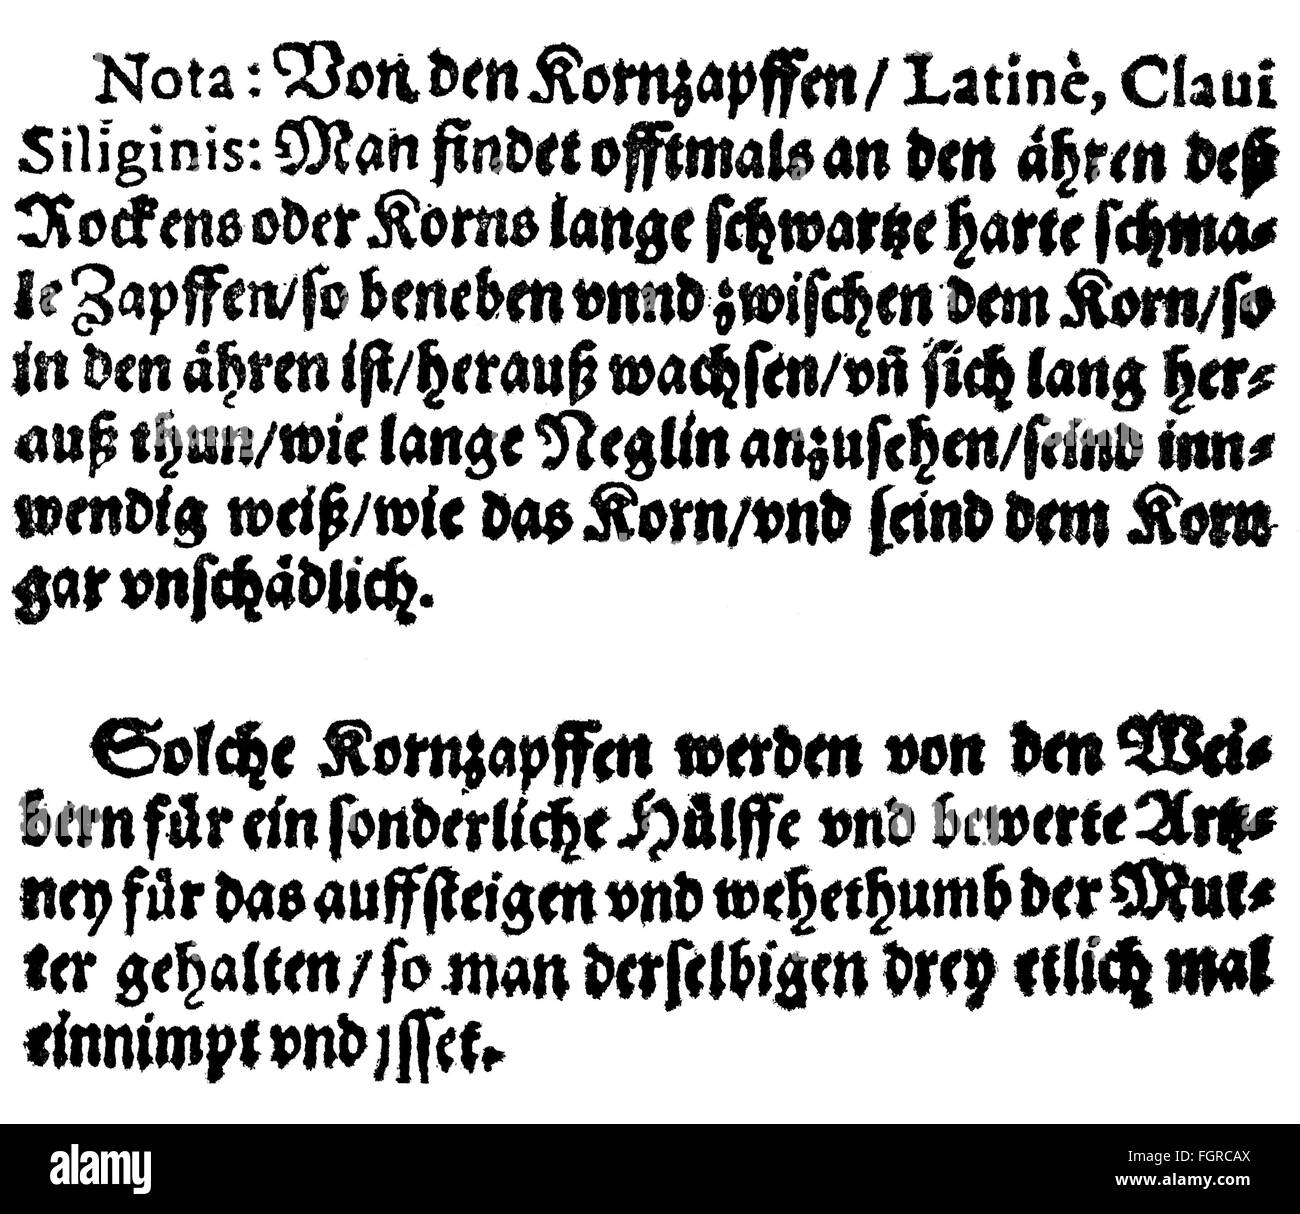 Nota: Von den Kornzapffen/ Latinè, Claui
Siliginis: Man findet offtmals an den ähren deß
Rockens oder Korns lange schwartze harte schma-
le Zapffen/so beneben vnnd zwischen dem Korn/so
in den ähren ist/herauß wachsen/vñ sich lang her-
auß thun/wie lange Neglin anzusehen/seind inn-
wendig weiß/wie das Korn/vnd seind dem Korn
gar vnschädlich.
Solche Kornzapffen werden von den Wei-
bern für ein sonderliche Hülffe vnd bewerte Artz-
ney für das auffsteigen vnd wehethumb der Mut-
ter gehalten/so man derselbigen drey etlich mal
einnimpt vnd jsset.
alamy
Image ID: FGRCAX
www.alamy.com